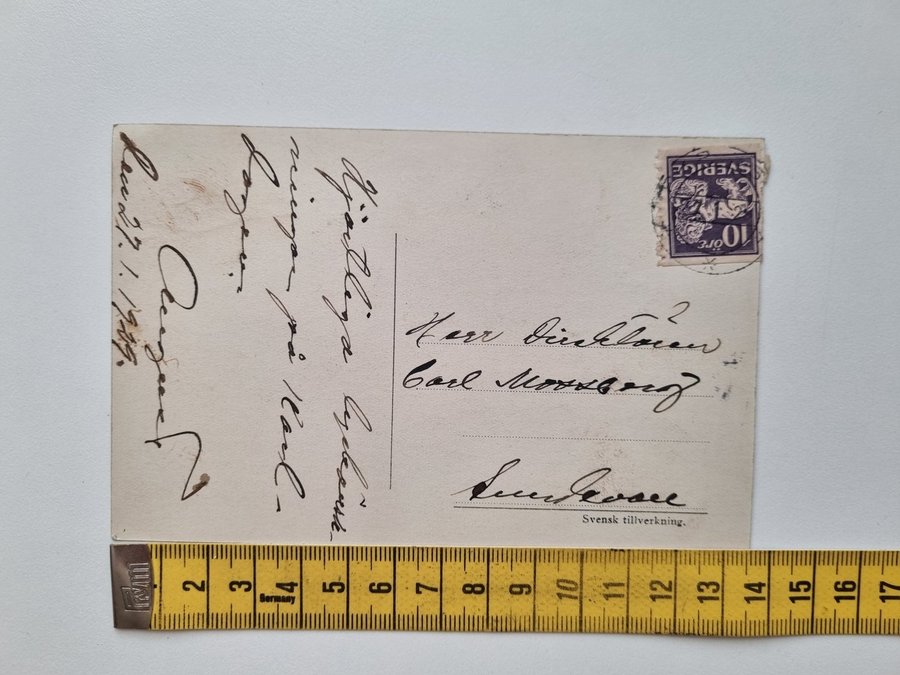 Hjärtliga lyckönsk-
ningar på Karl-
dagen.
Lund 27.1.1929.
SVERIGE
10 ÖRE
Herr Direktören
Carl Mossberg
Sundsvall
Svensk tillverkning.
2 3 4 5 6 7 8 9 10 11 12 13 14 15 16 17
Germany